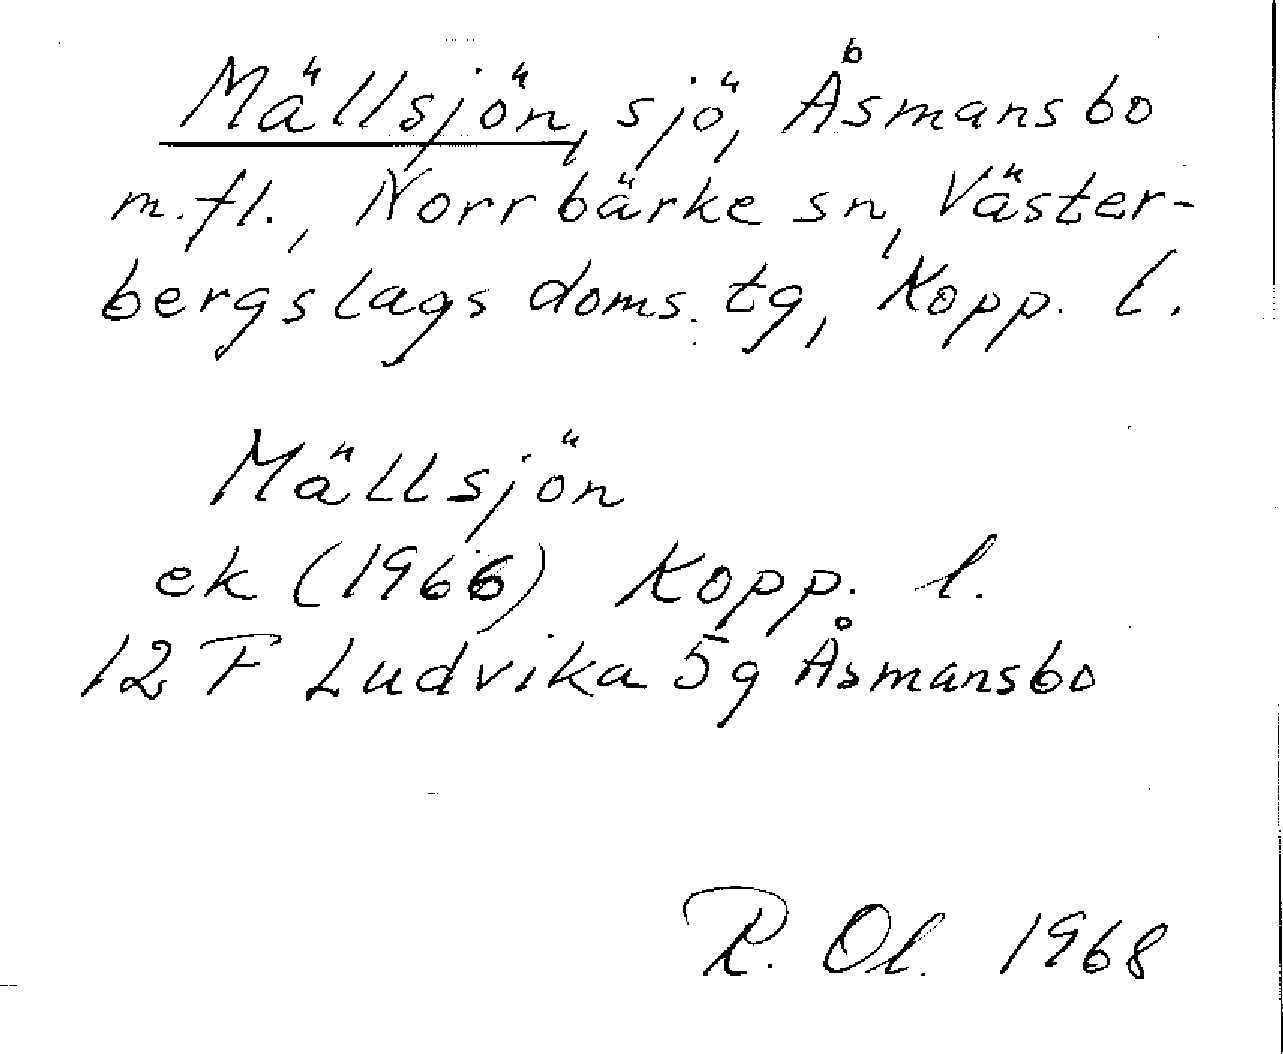 Mällsjön, sjö, Åsmansbo
m.fl., Norrbärke sn, Väster-
bergslags doms. tg, Kopp. l.
Mällsjön
ek (1966) Kopp. l.
12 F Ludvika 5g Åsmansbo
R. Ol. 1968